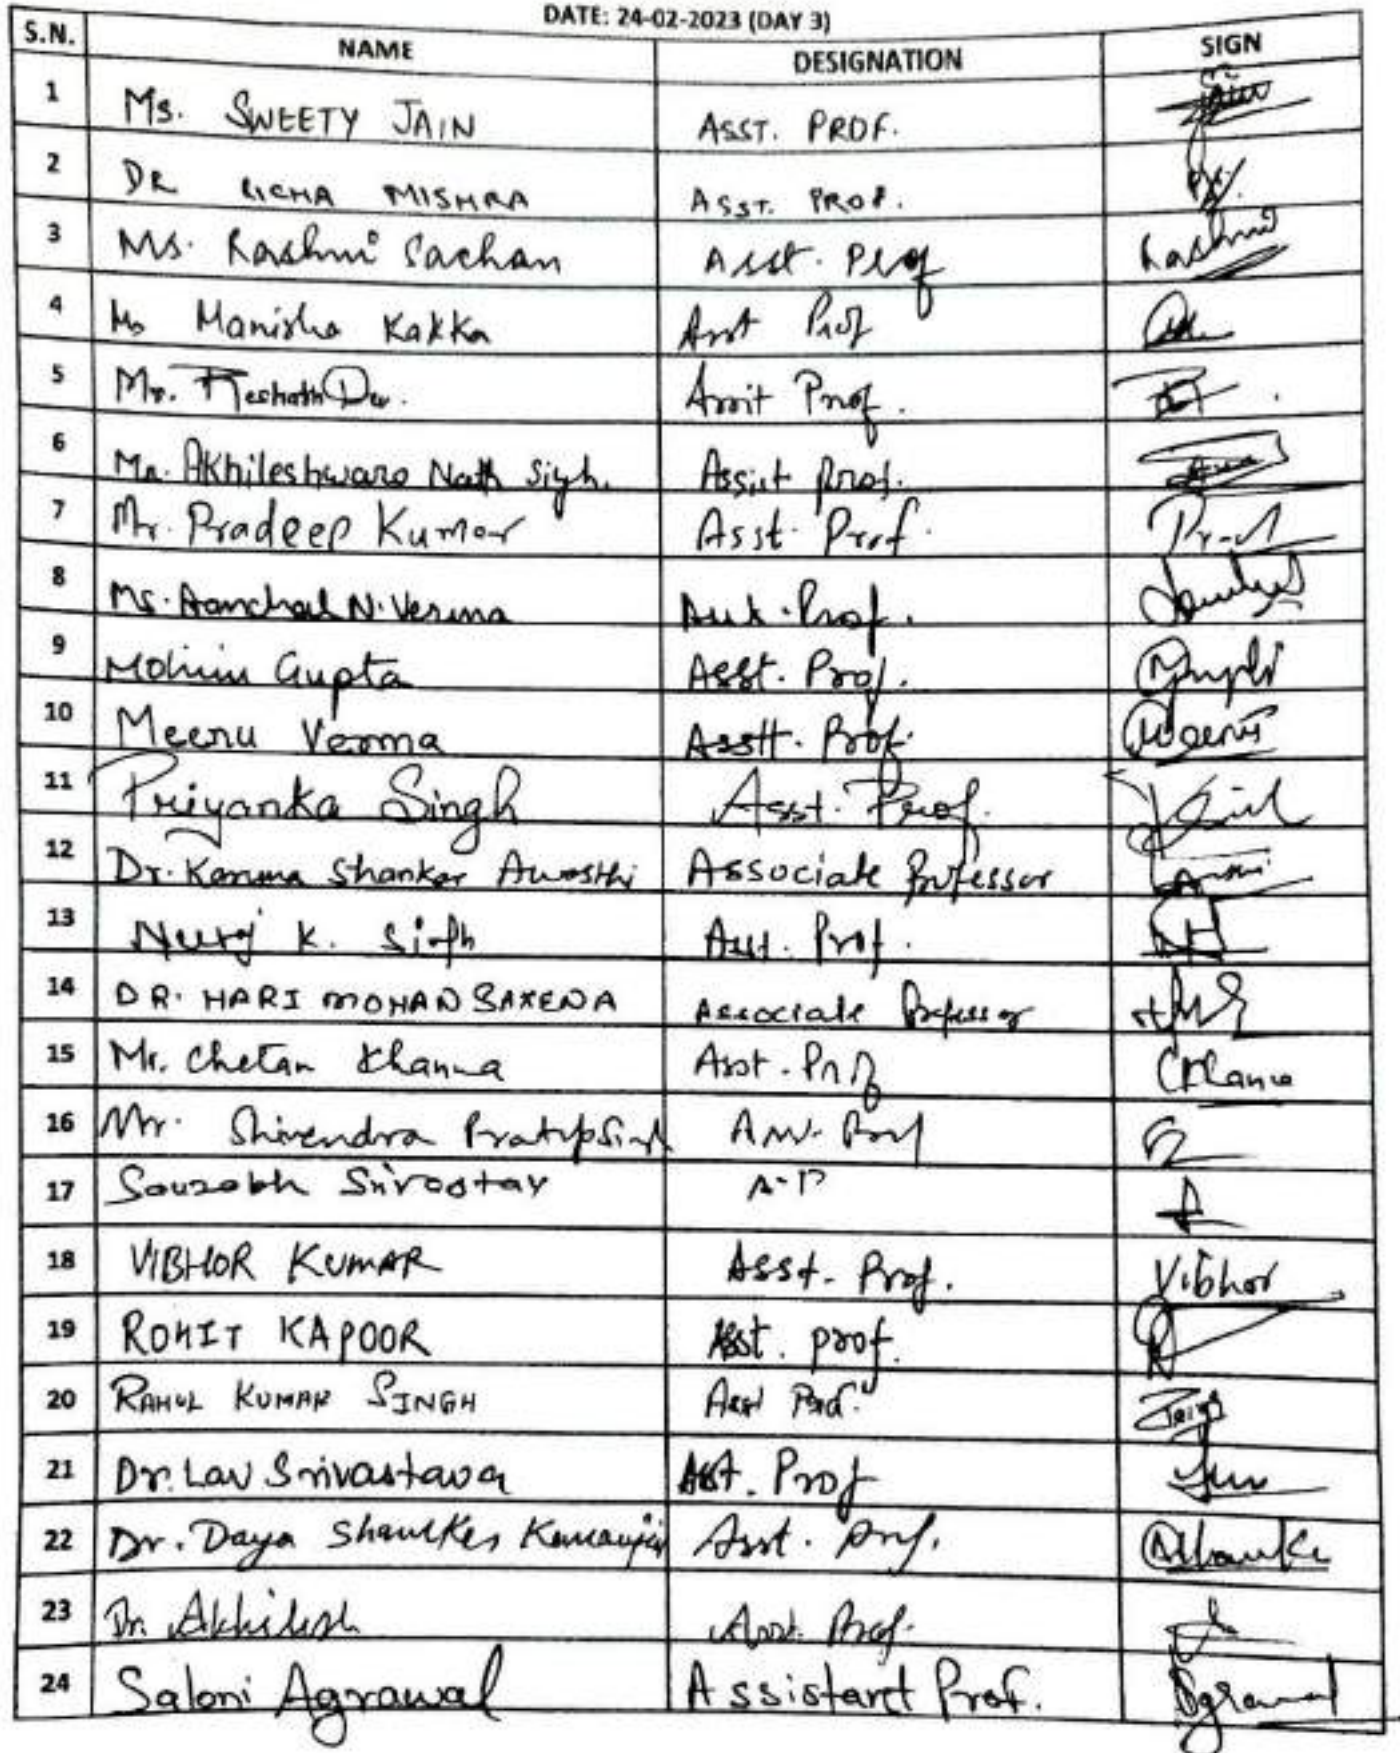 DATE: 24-02-2023 (DAY 3)
S.N. NAME DESIGNATION SIGN
1 Ms. SWEETY JAIN ASST. PROF.
2 DR RICHA MISHRA ASST. PROF.
3 Ms. Rashmi Sachan Asst. Prof Rashmi
4 Ms Manisha Kakka Asst Prof
5 Mr. Assit Prof.
6 Mr. Akhileshwara Nath Singh. Assist Prof.
7 Mr. Pradeep Kumar Asst. Prof.
8 Ms. Aanchal N. Verma Asst. Prof.
9 Mohini Gupta Asst. Prof.
10 Meenu Verma Asstt. Prof.
11 Priyanka Singh Asst. Prof.
12 Dr. Karuna Shanker Awasthi Associate Professor
13 Neeraj K. Singh Asst. Prof.
14 DR. HARI MOHAN SAXENA Associate Professor HMS
15 Mr. Chetan Khanna Asst. Prof CKhanna
16 Mr. Shivendra Pratap Singh Prof
17 Sourabh Srivastav A.P
18 VIBHOR KUMAR Asst. Prof. Vibhor
19 ROHIT KAPOOR Asst. prof.
20 RAHUL KUMAR SINGH Asst Prof.
21 Dr. Lav Srivastava Asst. Prof
22 Dr. Daya Shanker Asst. Prof.
23 Dr. Akhilesh Asst. Prof.
24 Saloni Agrawal Assistant Prof. Agrawal